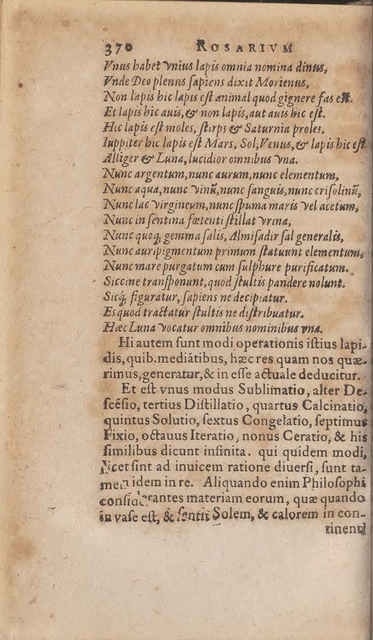 370 ROSARIVM
Vnus habet vnius lapis omnia nomina dinus,
Vnde Deo plenus sapiens dixit Morienus,
Non lapis hic lapis est animal quod gignere fas est.
Et lapis hic auis, & non lapis, aut auis hic est.
Hic lapis est moles, stirps & Saturnia proles.
Iuppiter hic lapis est Mars, Sol, Venus, & lapis hic est
Alliger & Luna, lucidior omnibus vna.
Nunc argentum, nunc aurum, nunc elementum,
Nunc aqua, nunc vinũ, nunc sanguis, nunc crisolinũ,
Nunc lac virgineum, nunc spuma maris vel acetum,
Nunc in sentina fœtenti stillat vrina,
Nunc quoq; gemma salis, Almisadir sal generalis,
Nunc auripigmentum primum statuunt elementum,
Nunc mare purgatum cum sulphure purificatum.
Siccine transponunt, quod stultis pandere nolunt.
Sicq; figuratur, sapiens ne decipiatur.
Et quod tractatur stultis ne distribuatur.
Hæc Luna vocatur omnibus nominibus vna.
Hi autem sunt modi operationis istius lapi-
dis, quib. mediãtibus, hæc res quam nos quæ-
rimus, generatur, & in esse actuale deducitur.
Et est vnus modus Sublimatio, alter De-
scẽsio, tertius Distillatio, quartus Calcinatio,
quintus Solutio, sextus Congelatio, septimus
Fixio, octauus Iteratio, nonus Ceratio, & his
similibus dicunt infinita. qui quidem modi,
licet sint ad inuicem ratione diuersi, sunt ta-
men idem in re. Aliquando enim Philosophi
considerantes materiam eorum, quæ quando
in vase est, & sentit Solem, & calorem in con-
tinenti